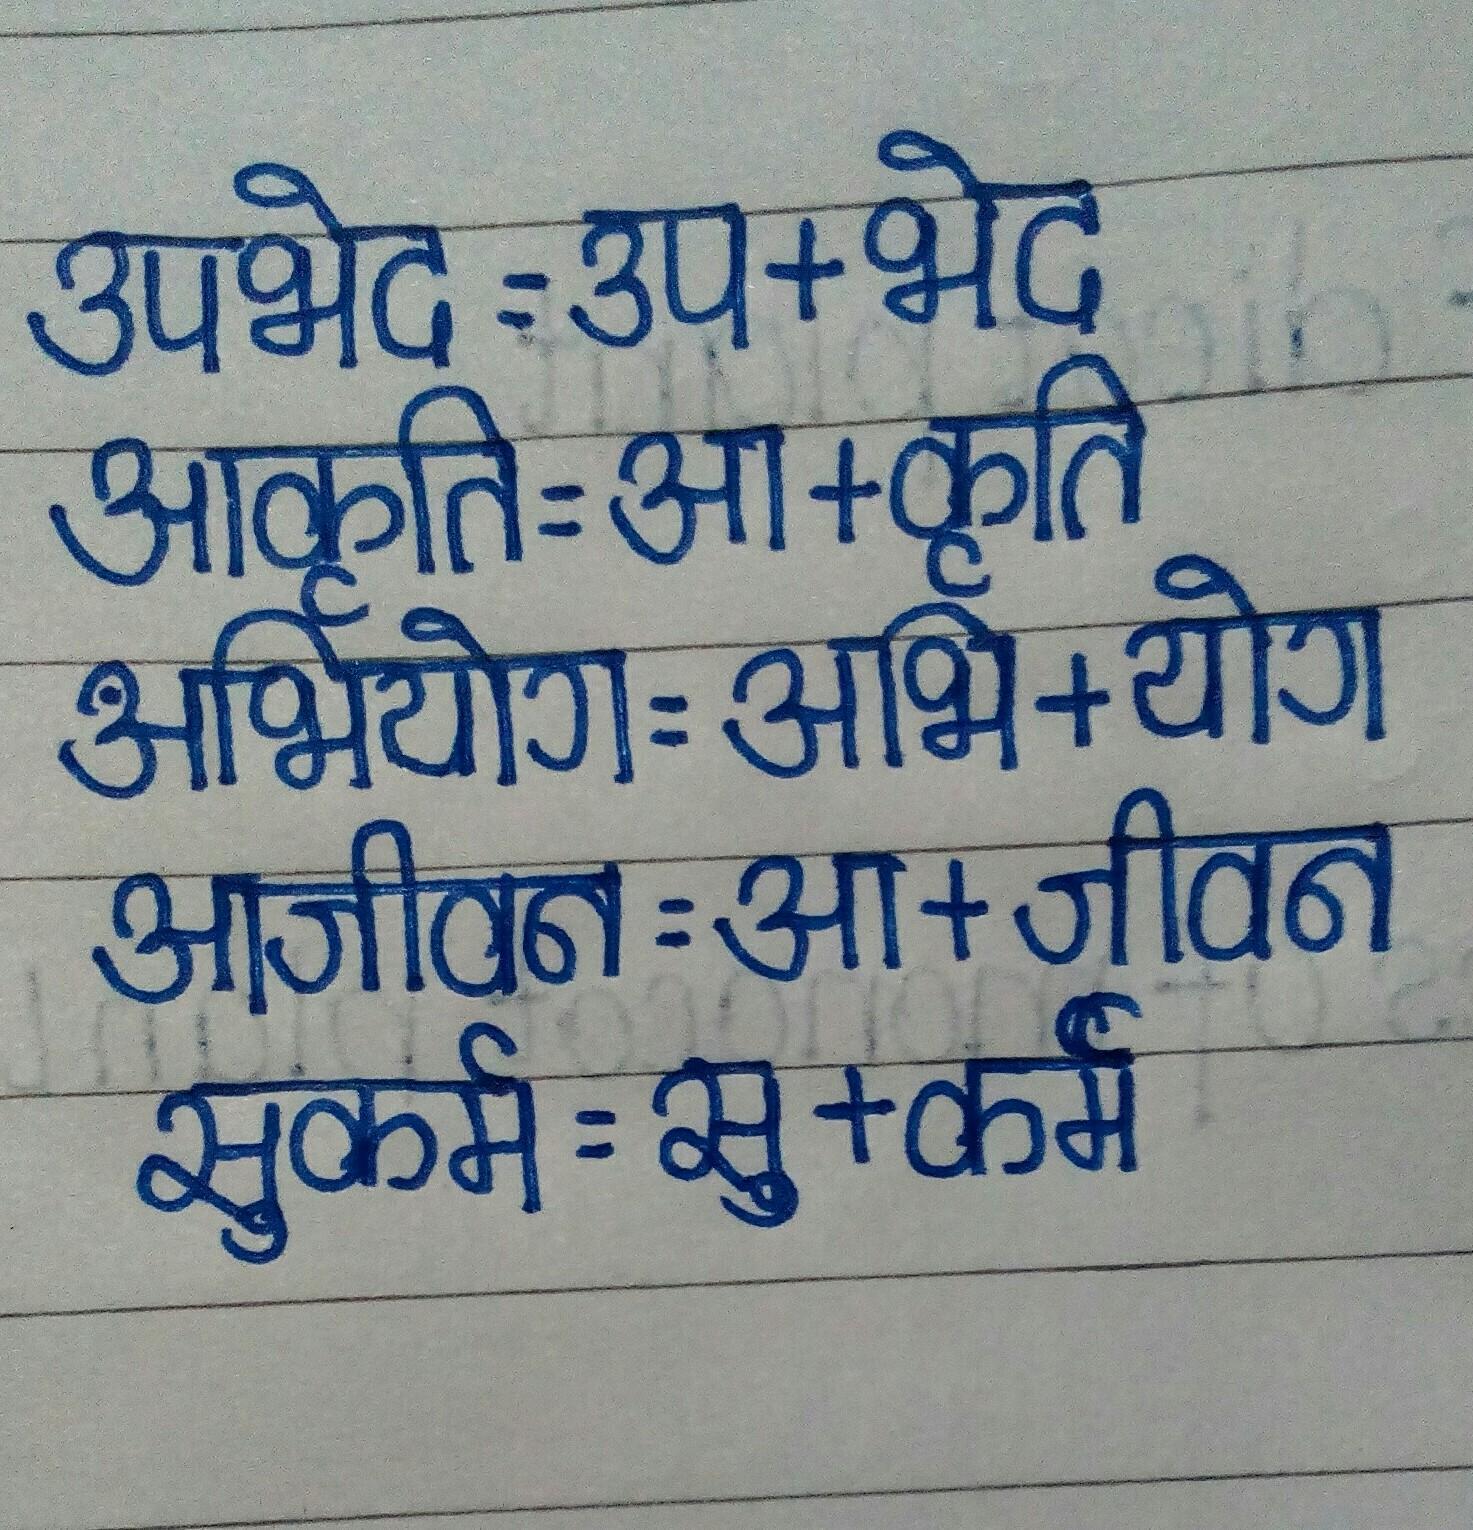 उपभेद = उप + भेद
आकृति = आ + कृति
अभियोग = अभि + योग
आजीवन = आ + जीवन
सुकर्म = सु + कर्म